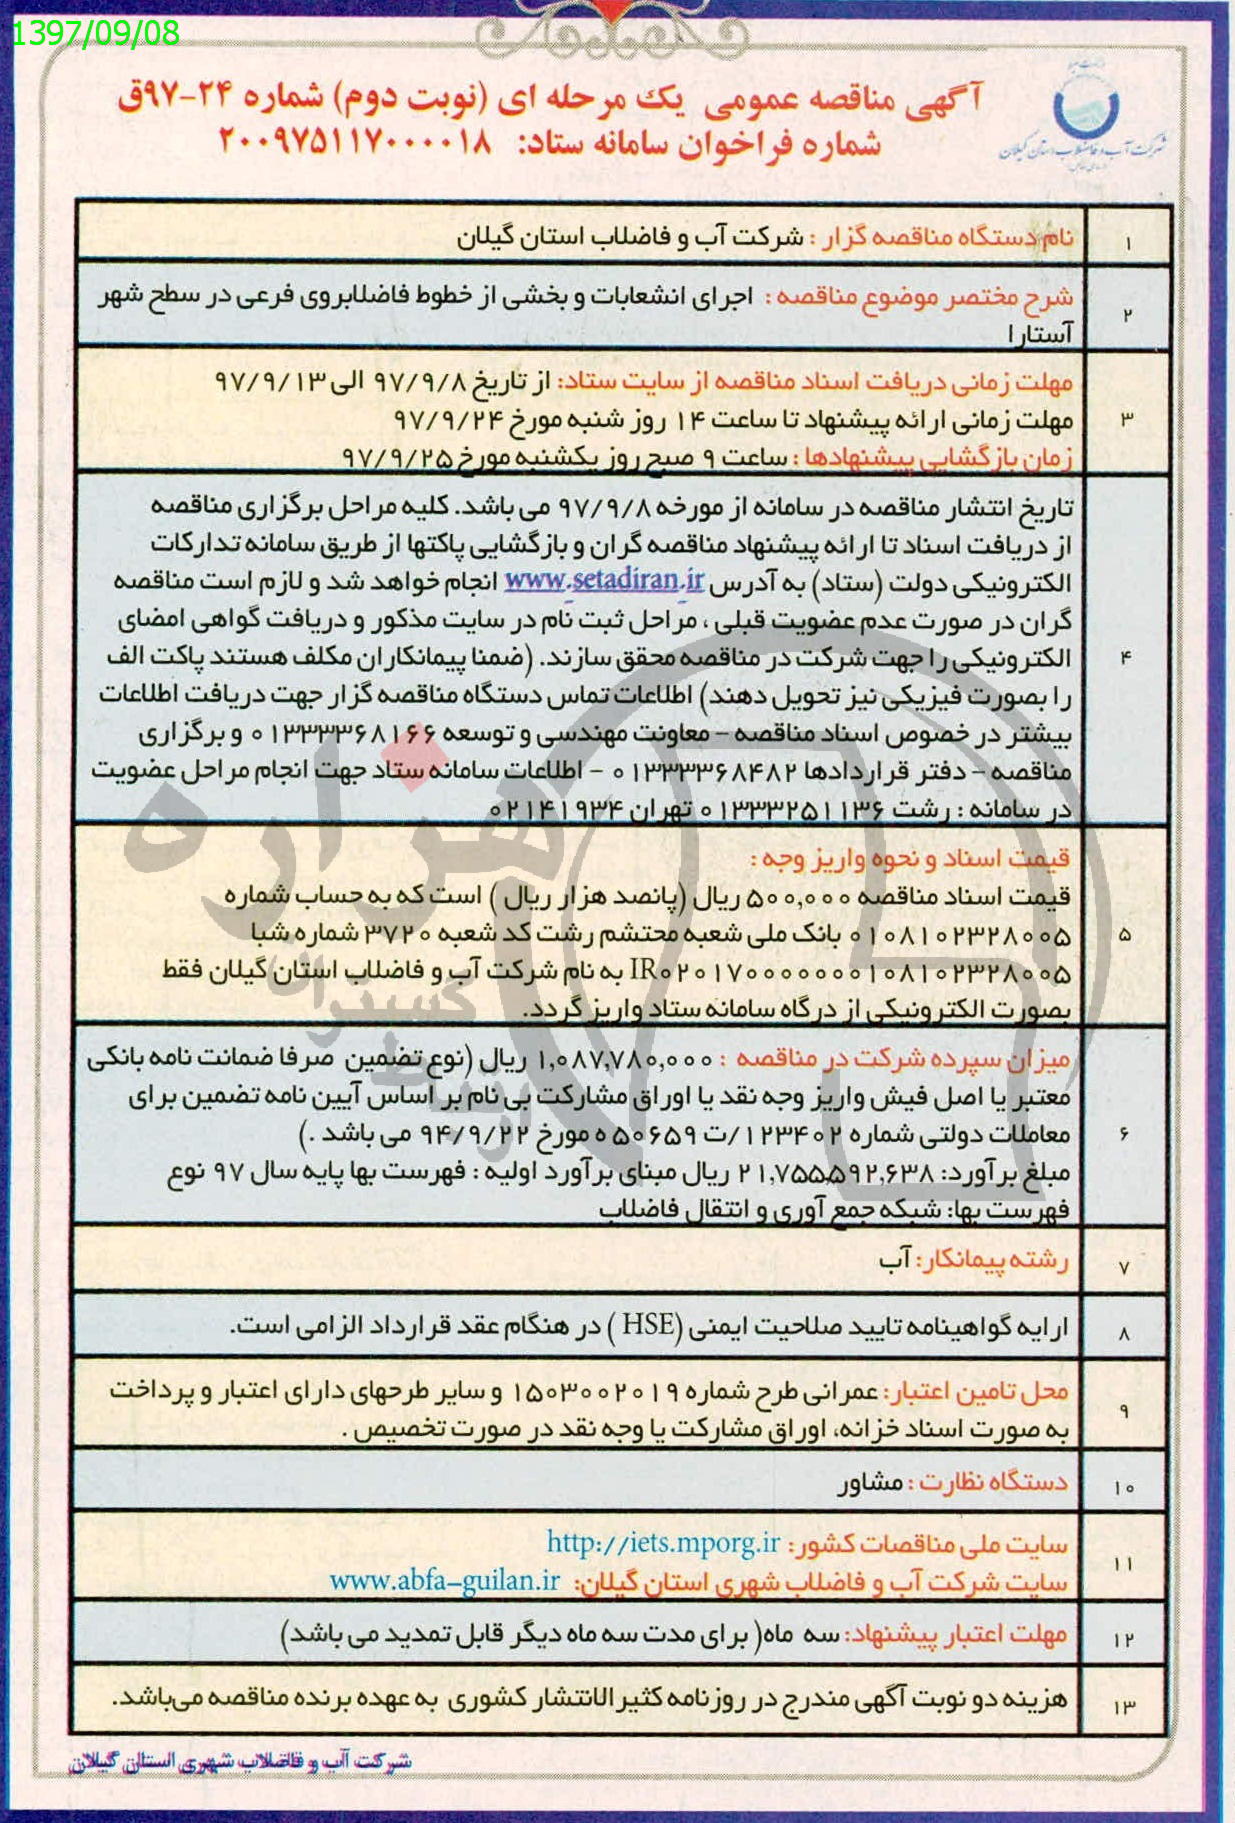 1397/09/08
آگهی مناقصه عمومی یک مرحله ای (نوبت دوم) شماره ۲۴-۹۷ق
شماره فراخوان سامانه ستاد: ۲۰۰۹۷۵۱۱۷۰۰۰۰۱۸
شرکت آب و فاضلاب استان گیلان
۱
نام دستگاه مناقصه گزار : شرکت آب و فاضلاب استان گیلان
۲
شرح مختصر موضوع مناقصه : اجرای انشعابات و بخشی از خطوط فاضلابروی فرعی در سطح شهر
آستارا
۳
مهلت زمانی دریافت اسناد مناقصه از سایت ستاد: از تاریخ ۹۷/۹/۸ الی ۹۷/۹/۱۳
مهلت زمانی ارائه پیشنهاد تا ساعت ۱۴ روز شنبه مورخ ۹۷/۹/۲۴
زمان بازگشایی پیشنهادها : ساعت ۹ صبح روز یکشنبه مورخ ۹۷/۹/۲۵
۴
تاریخ انتشار مناقصه در سامانه از مورخه ۹۷/۹/۸ می باشد. کلیه مراحل برگزاری مناقصه
از دریافت اسناد تا ارائه پیشنهاد مناقصه گران و بازگشایی پاکتها از طریق سامانه تدارکات
الکترونیکی دولت (ستاد) به آدرس www.setadiran.ir انجام خواهد شد و لازم است مناقصه
گران در صورت عدم عضویت قبلی ، مراحل ثبت نام در سایت مذکور و دریافت گواهی امضای
الکترونیکی را جهت شرکت در مناقصه محقق سازند. (ضمنا پیمانکاران مکلف هستند پاکت الف
را بصورت فیزیکی نیز تحویل دهند) اطلاعات تماس دستگاه مناقصه گزار جهت دریافت اطلاعات
بیشتر در خصوص اسناد مناقصه – معاونت مهندسی و توسعه ۰۱۳۳۳۳۶۸۱۶۶ و برگزاری
مناقصه – دفتر قراردادها ۰۱۳۳۳۳۶۸۴۸۲ – اطلاعات سامانه ستاد جهت انجام مراحل عضویت
در سامانه : رشت ۰۱۳۳۳۲۵۱۱۳۶ تهران ۰۲۱۴۱۹۳۴
۵
قیمت اسناد و نحوه واریز وجه :
قیمت اسناد مناقصه ۵۰۰,۰۰۰ ریال (پانصد هزار ریال ) است که به حساب شماره
۰۱۰۸۱۰۲۳۲۸۰۰۵ بانک ملی شعبه محتشم رشت کد شعبه ۳۷۲۰ شماره شبا
IR۰۲۰۱۷۰۰۰۰۰۰۰۱۰۸۱۰۲۳۲۸۰۰۵ به نام شرکت آب و فاضلاب استان گیلان فقط
بصورت الکترونیکی از درگاه سامانه ستاد واریز گردد.
۶
میزان سپرده شرکت در مناقصه : ۱,۰۸۷,۷۸۰,۰۰۰ ریال (نوع تضمین صرفا ضمانت نامه بانکی
معتبر یا اصل فیش واریز وجه نقد یا اوراق مشارکت بی نام بر اساس آیین نامه تضمین برای
معاملات دولتی شماره ۱۲۳۴۰۲/ت ۵۰۶۵۹ ه مورخ ۹۴/۹/۲۲ می باشد .)
مبلغ برآورد: ۲۱,۷۵۵,۵۹۲,۶۳۸ ریال مبنای برآورد اولیه : فهرست بها پایه سال ۹۷ نوع
فهرست بها: شبکه جمع آوری و انتقال فاضلاب
۷
رشته پیمانکار: آب
۸
ارایه گواهینامه تایید صلاحیت ایمنی (HSE ) در هنگام عقد قرارداد الزامی است.
۹
محل تامین اعتبار: عمرانی طرح شماره ۱۵۰۳۰۰۲۰۱۹ و سایر طرحهای دارای اعتبار و پرداخت
به صورت اسناد خزانه، اوراق مشارکت یا وجه نقد در صورت تخصیص .
۱۰
دستگاه نظارت : مشاور
۱۱
سایت ملی مناقصات کشور: http://iets.mporg.ir
سایت شرکت آب و فاضلاب شهری استان گیلان: www.abfa-guilan.ir
۱۲
مهلت اعتبار پیشنهاد: سه ماه( برای مدت سه ماه دیگر قابل تمدید می باشد)
۱۳
هزینه دو نوبت آگهی مندرج در روزنامه کثیرالانتشار کشوری به عهده برنده مناقصه می‌باشد.
شرکت آب و فاضلاب شهری استان گیلان
هزاره